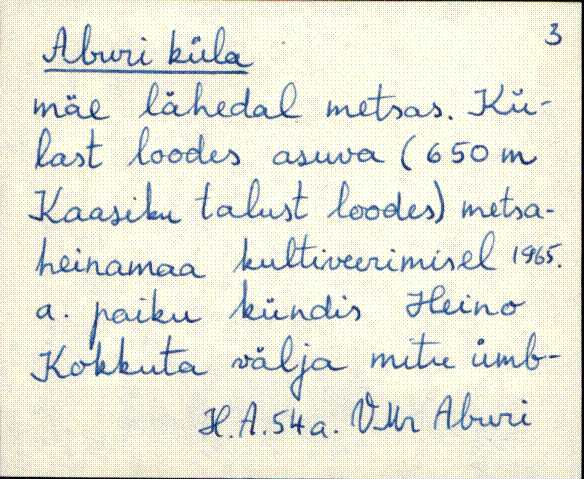 3
Aburi küla
mäe lähedal metsas. Kü-
last loodes asuva (650 m
Kaasiku talust loodes) metsa-
heinamaa kultiveerimisel 1965.
a. paiku kündis Heino
Kokkuta välja mitu ümb-
H.A. 54 a. VMr Aburi